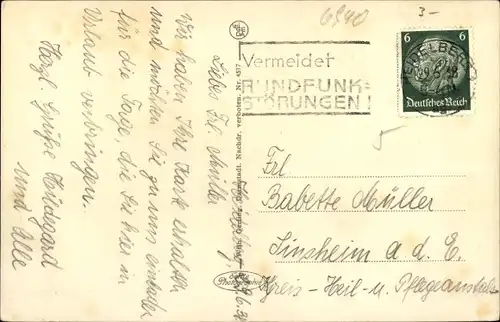 6940
3-
Vermeidet
RUNDFUNK=
STÖRUNGEN!
6 6
Deutsches Reich
5
Frl
Babette Müller
Sinsheim a. d. E.
Kreis-Heil-u. Pflegeanstalt
Liebes Frl. Müller.
Wir haben Ihre Karte erhalten
und möchten Sie zu uns einladen
für die Tage, die Sie hier in
Urlaub verbringen.
Herzl. Grüße Hildegard
und Alle
Nachdr. verboten. Nr.